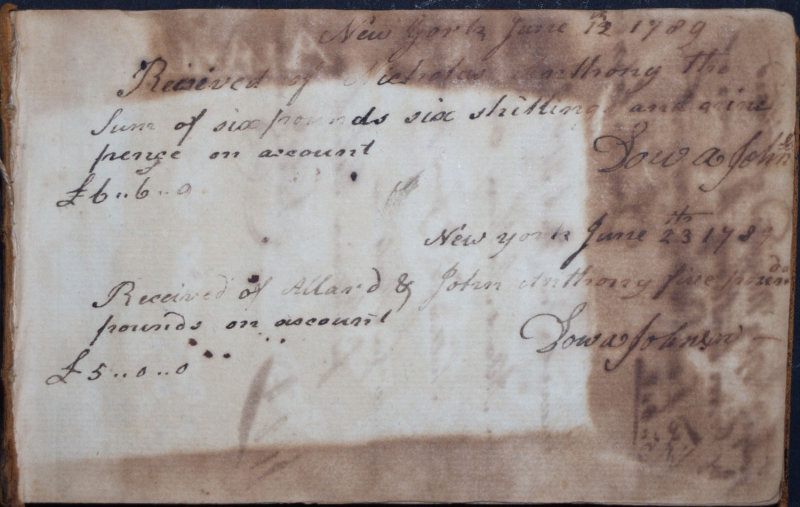 New York June 12 1789
Received of Nicholas Anthony the
Sum of six pounds six shillings and nine
penge on account
£6..6..9
Dow a John
New york June 23th 1789
Received of Allard & John Anthony five pounds
pounds on account
Dow a Johnson
£5..0..0